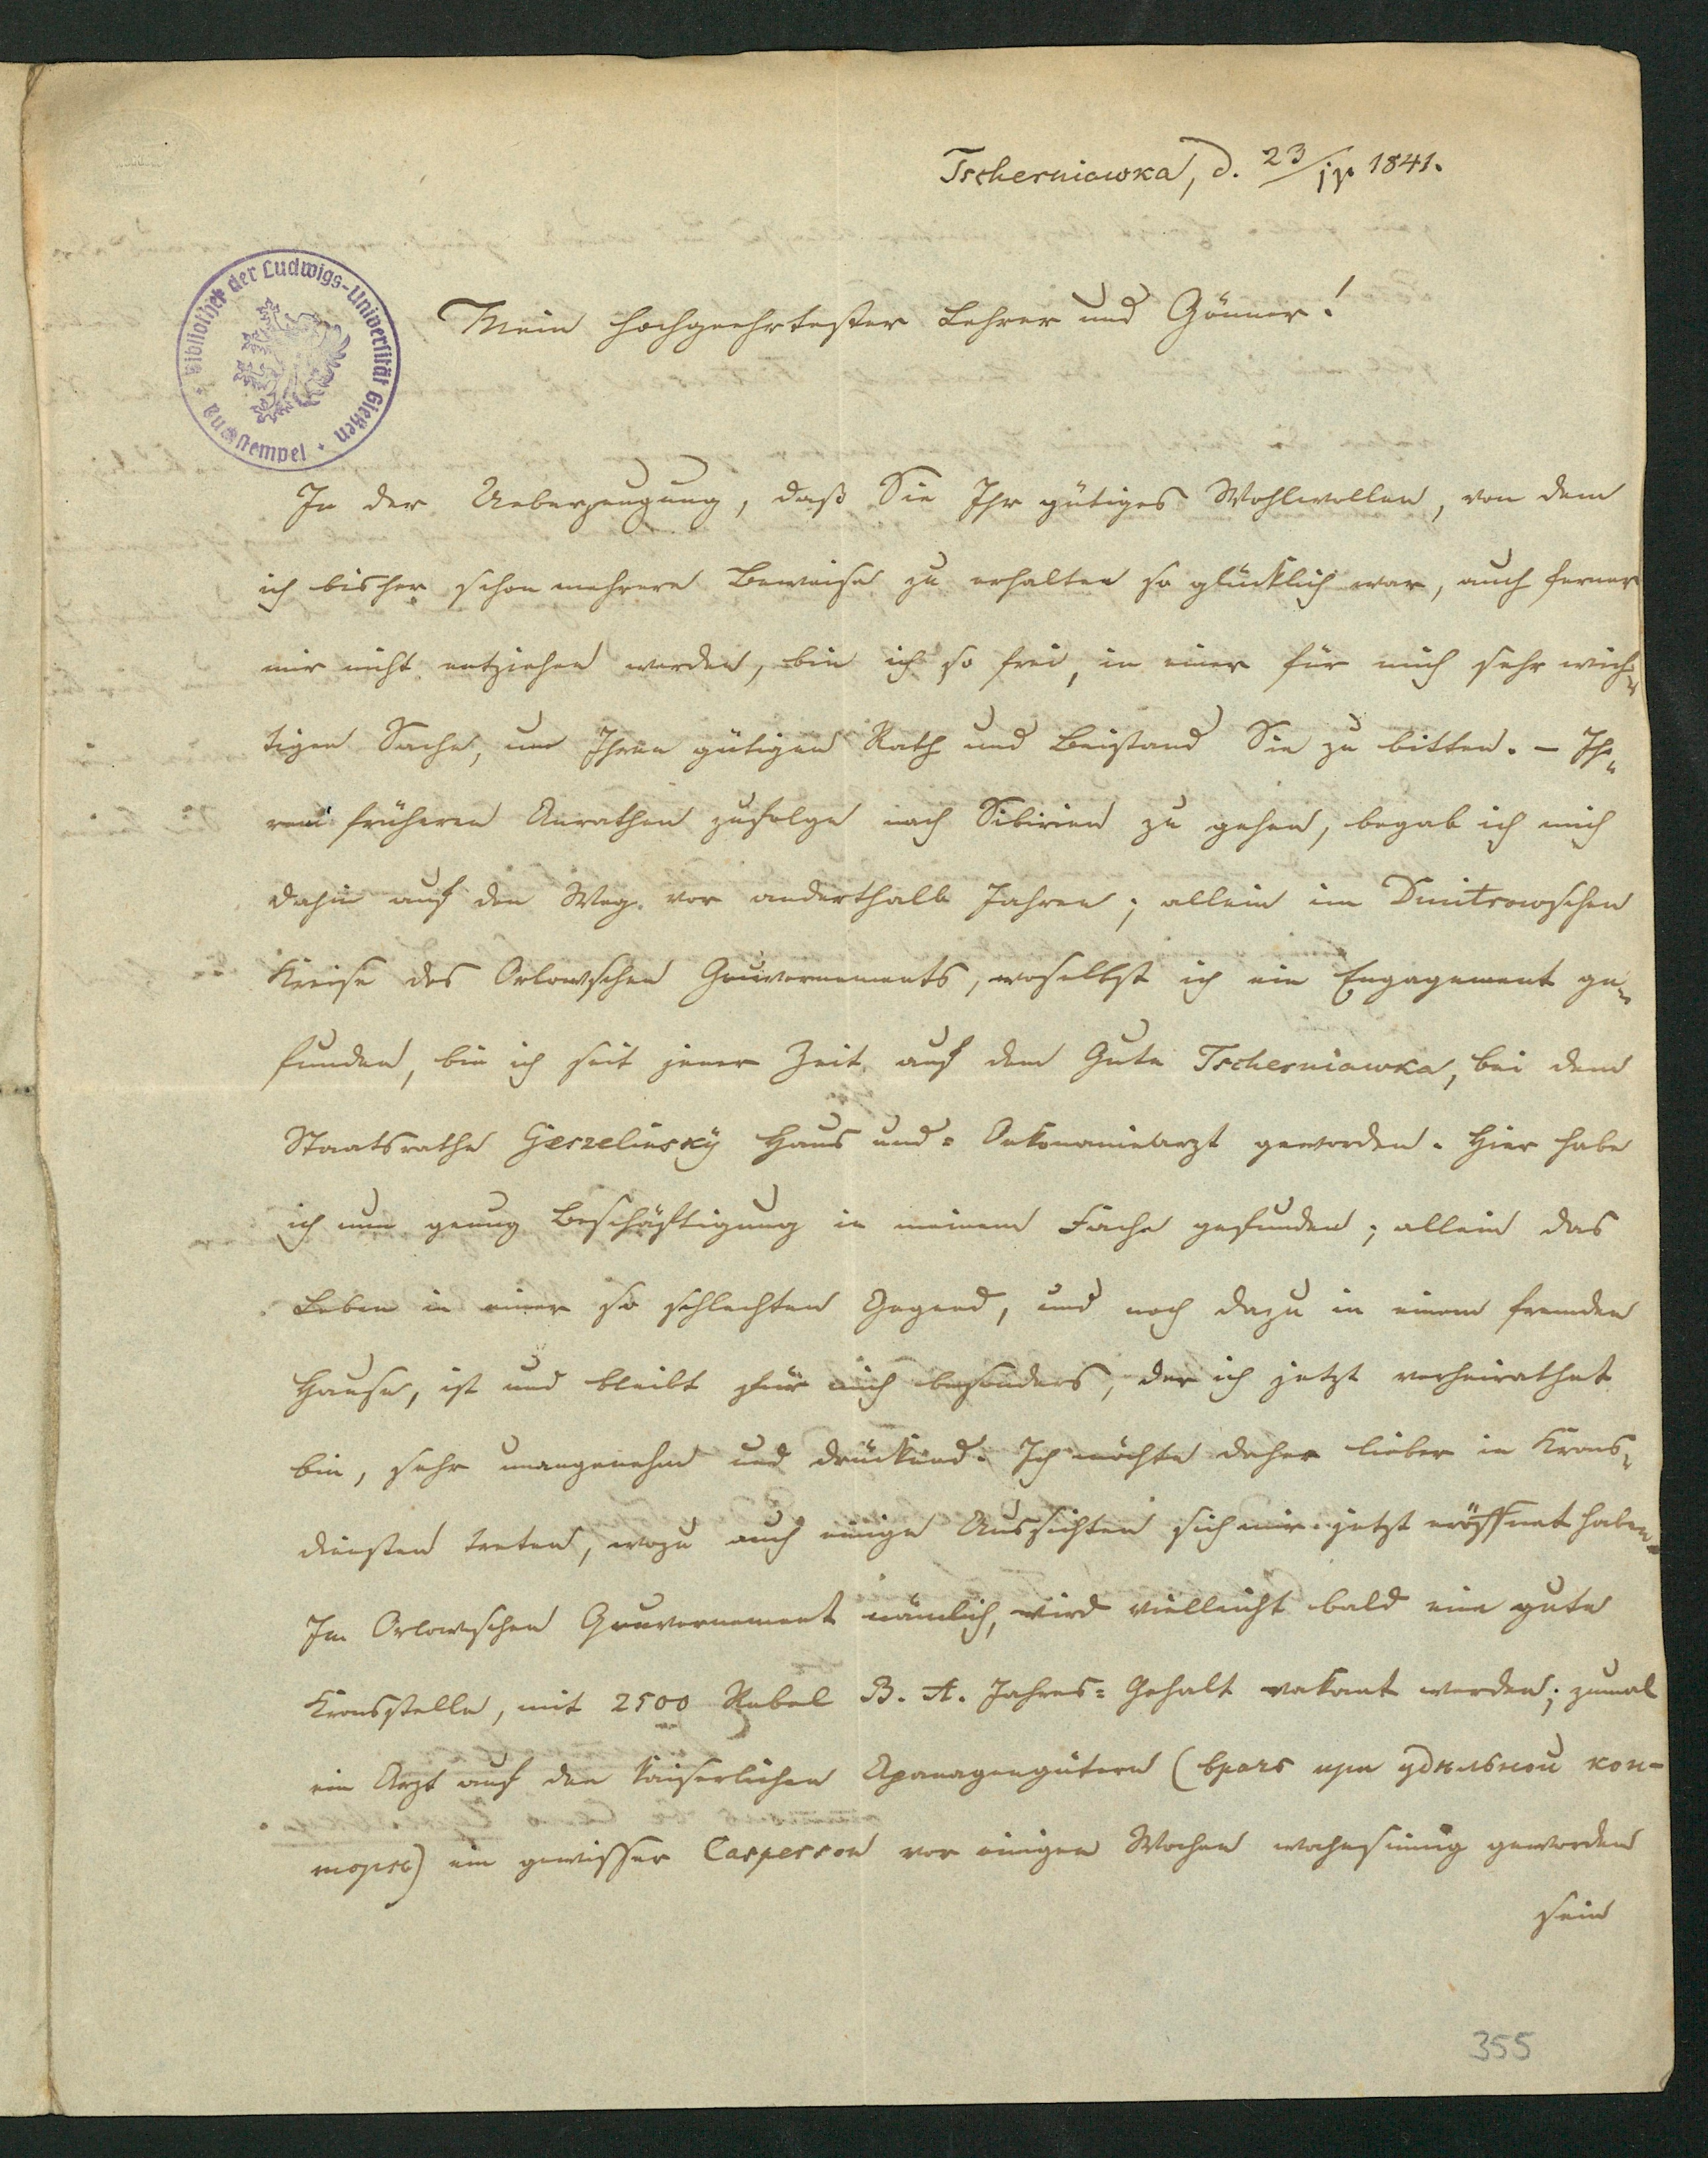 Tscherniawka, d. 23/IV. 1841.
Bibliothek der Ludwigs-Universität Gießen
Buchstempel
Mein hochgeehrtester Lehrer und Gönner!
In der Ueberzeugung, daß Sie Ihr gütiges Wohlwollen, von dem
ich bisher schon mehrere Beweise zu erhalten so glücklich war, auch ferner
mir nicht entziehen werden, bin ich so frei, in einer für mich sehr wich-
tigen Sache, um Ihren gütigen Rath und Beistand Sie zu bitten. – Ih-
rem früheren Anrathen zufolge nach Sibirien zu gehen, begab ich mich
dahin auf den Weg vor anderthalb Jahren; allein im Dmitrowschen
Kreise des Orlowschen Gouvernements, woselbst ich ein Engagement ge-
funden, bin ich seit jener Zeit auf dem Gute Tscherniawka, bei dem
Staatsrathe Geszelinsky Haus und- Oekonomiearzt geworden. Hier habe
ich nun genug Beschäftigung in meinem Fache gefunden; allein das
Leben in einer so schlechten Gegend, und noch dazu in einem fremden
Hause, ist und bleibt für mich besonders, der ich jetzt verheirathet
bin, sehr unangenehm und drückend. Ich möchte daher lieber in Krons-
diensten treten, wozu auch einige Aussichten sich mir jetzt eröffnet haben.
Im Orlowschen Gouvernement nämlich, wird vielleicht bald eine gute
Kronsstelle, mit 2500 Rubel B. A. Jahres-Gehalt vakant werden; zumal
ein Arzt auf den Kaiserlichen Apanagengütern (врачъ при удѣльной кон-
торѣ) ein gewisser Casperson vor einigen Wochen wahnsinnig geworden
sein
355